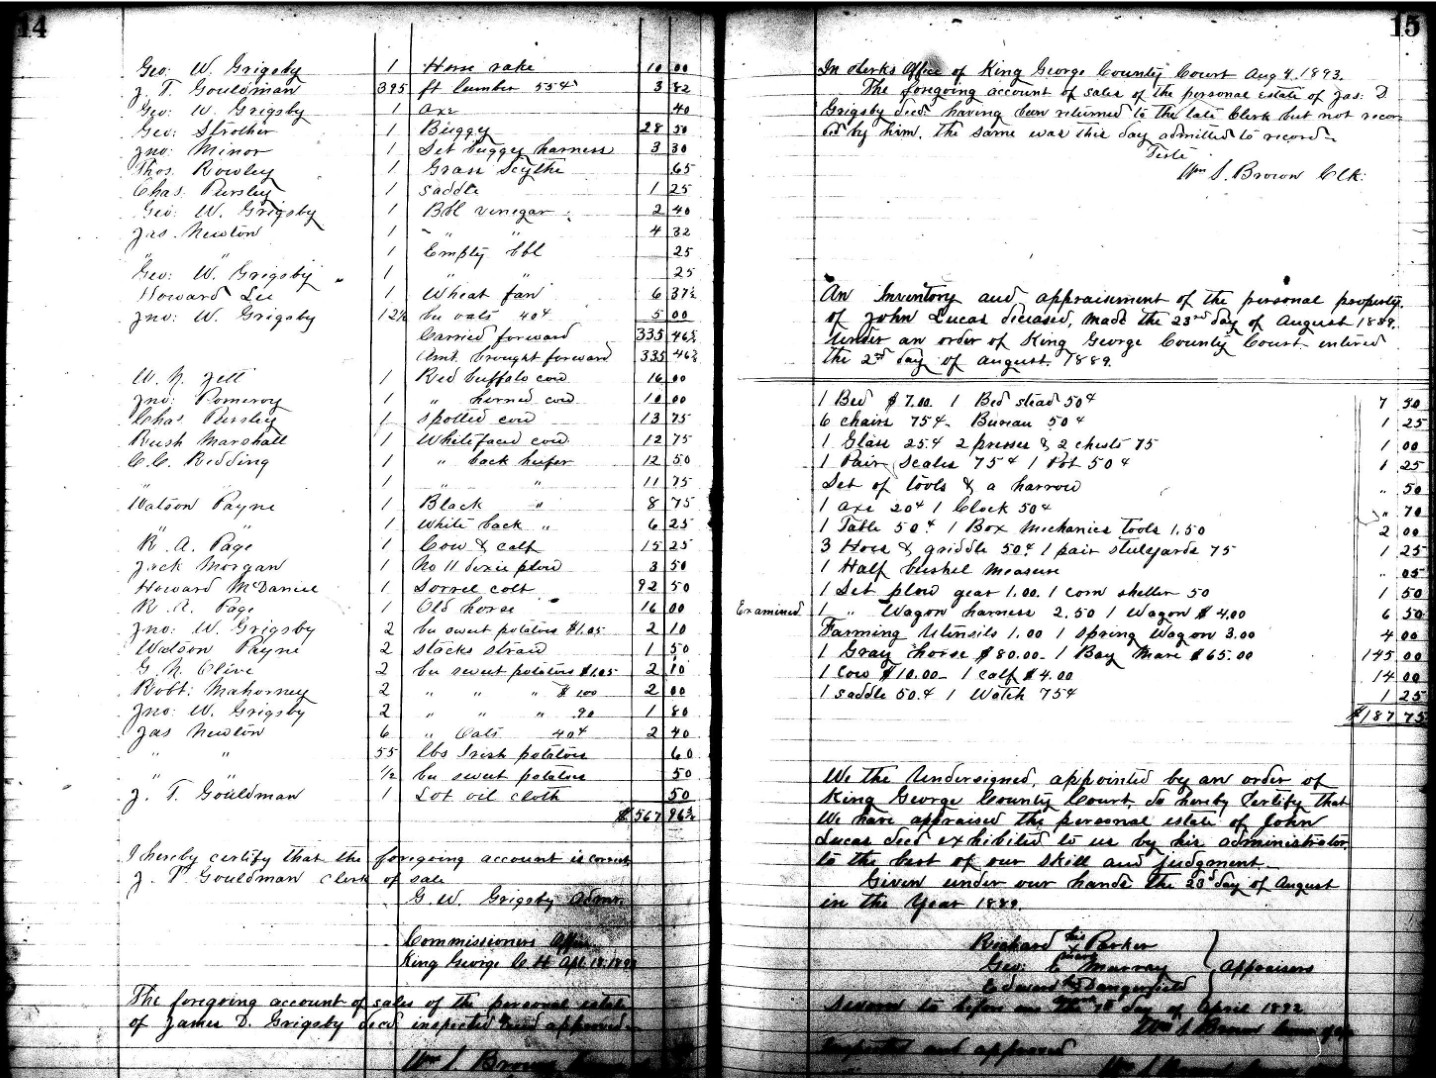 14
Geo: W. Grigsby 1 Horse rake 10 00
J. T. Gouldman 395 ft lumber 55¢ 3 82
Geo: W Grigsby 1 axe .40
Geo: Strother 1 Buggy 28 50
Jno: Minor 1 Set buggy harness 3 30
Thos. Rowley 1 Grass Scythe .65
Chas: Pursley 1 saddle 1 25
Geo: W. Grigsby 1 Bbl vinegar 2 40
Jas. Newton 1 " " 4 32
" " 1 Empty bbl 25
Geo: W. Grigsby 1 " " 25
Howard Lee 1 Wheat fan 6 37½
Jno: W. Grigsby 12½ bu oats 40¢ 5 00
Carried forward 335 46½
Amt. brought forward 335 46½
W. N. Jett 1 Red buffalo cow 16 00
Jno: Pomeroy 1 " horned cow 10 00
Chas Pursley 1 Spotted cow 13 75
Rush Marshall 1 Whitefaced cow 12 75
C. C. Redding 1 " back heifer 12 50
" 1 " " 11 75
Watson Payne 1 Black " 8 75
" " 1 White back " 6 25
R. A. Page 1 Cow & calf 15 25
Jack Morgan 1 No 11 dixie plow 3 50
Howard McDaniel 1 Sorrel colt 92 50
R. A. Page 1 Old horse 16 00
Jno: W. Grigsby 2 bu sweet potatoes $1.05 2 10
Watson Payne 2 stacks straw 1 50
G. N. Clive 2 bu sweet potatoes $1.05 2 10
Robt: Mahorney 2 " " " $1.00 2 00
Jno: W. Grigsby 2 " " " .90 1 80
Jas Newton 6 " Oats 40¢ 2 40
" " 55 lbs Irish potatoes 60
" " ½ bu sweet potatoes 50
J. T. Gouldman 1 Lot oil cloth 50
$567 96½
I hereby certify that the foregoing account is correct
J. T. Gouldman clerk of sale
G. W. Grigsby Admr.
Commissioners Office
King George C. H. Apl. 18. 1892
The foregoing account of sales of the personal estate
of James D. Grigsby decd inspected and approved
Wm S. Brown
15
In Clerks Office of King George County Court Aug 4. 1893.
The foregoing account of sales of the personal estate of Jas: D.
Grigsby decd: having been returned to the late Clerk but not recor
ded by him, the same was this day admitted to record
Teste
Wm S. Brown Clk.
An Inventory and appraisement of the personal property
of John Lucas deceased, made the 23rd day of August 1889.
Under an order of King George County Court entered
the 2nd day of August. 1889.
1 Bed $7.00. 1 Bed stead 50¢ 7 50
6 chairs 75¢ Bureau 50¢ 1 25
1 Glass 25¢ 2 presses & 2 chests 75 1 00
1 Pair Scales 75¢ 1 Pot 50¢ 1 25
Set of tools & a harrow " 50
1 axe 20¢ 1 Clock 50¢ " 70
1 Table 50¢ 1 Box Mechanics tools 1.50 2 00
3 Hoes & griddle 50¢ 1 pair stulyards 75 1 25
1 Half bushel measure " 05
1 Set plow gear 1.00. 1 corn sheller 50 1 50
Examined 1 " Wagon harness 2.50 1 Wagon $4.00 6 50
Farming Utensils 1.00 1 Spring Wagon 3.00 4 00
1 Gray horse $80.00 1 Bay Mare $65.00 145 00
1 Cow $10.00 1 calf $4.00 14 00
1 saddle 50¢ 1 Watch 75¢ 1 25
$187 75
We the Undersigned, appointed by an order of
King George County Court, do hereby Certify that
We have appraised the personal estate of John
Lucas decd exhibited to us by his administrator
to the best of our skill and judgment.
Given under our hands the 23d day of August
in the Year 1889.
Richard his x mark Parker
Geo: C Murray Appraisers
Edward Dangerfield
Sworn to before me the 7th day of April 1892
Wm S Brown
Inspected and approved
Wm S Brown